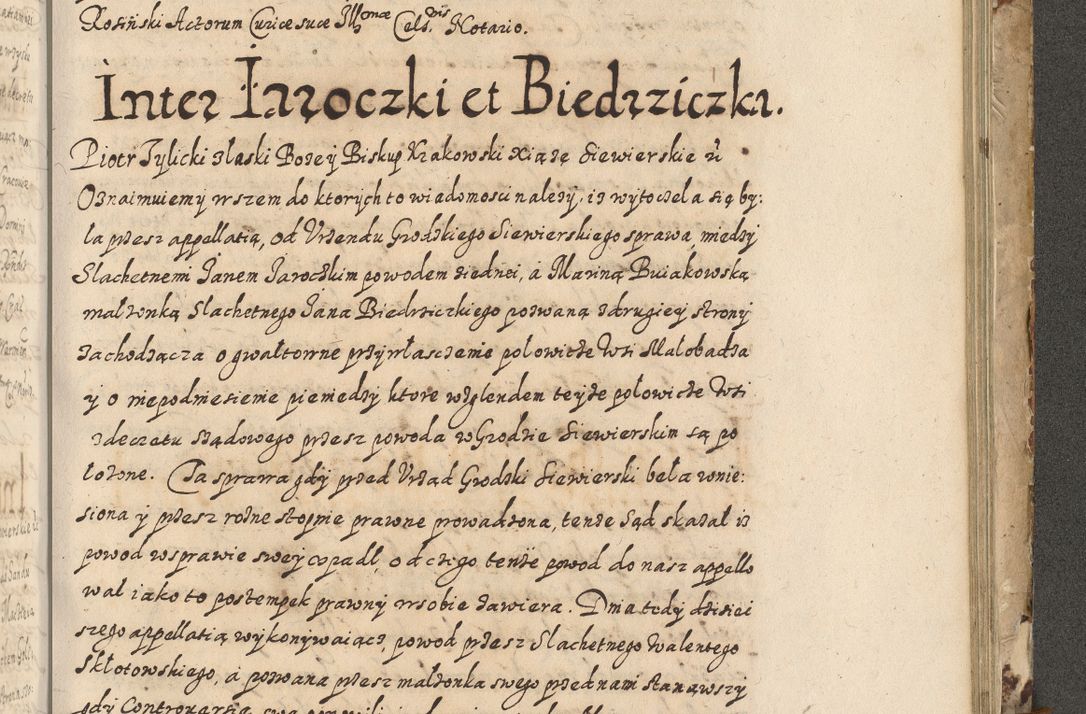 Rosiński Actorum Curiæ suæ Illmæ Cels. Notario.
Inter Iaroczki et Biedrziczka.
Piotr Tylicki z łaski Bozey Biskup Krakowski Xiązę Siewierskie
Oznaimuiemy wszem do ktorych to wiadomosci nalezy, iz wytoczela się by:
ła przez appellatią, od Urzendu Grodzkiego Siewierskiego sprawa, miedzy
Slachetnemi Janem Jaroczkim powodem ziednei, á Mariną Buiakowską
małzonką Slachetnego Jana Biedrziczkiego pozwaną zdrugiey strony
zachodząca o gwałtowne przywłasczenie połowicze Wsi Małobadza
y o niepodniesienie pieniedzy ktore względem teyze połowicze Wsi
zdecretu sządowego przez powoda w Grodzie Siewierskim są po
łozone. Ta sprawa gdy przed Urząd Grodzki Siewierski beła wnie:
siona y przez rozne stopnie prawne prowadzona, tenze Sąd skazał iz
powod w sprawie swey upadł, od czego tenze powod do nasz appello
wał iako to postempek prawny w sobie zawiera. Dnia tedy dzisiei
szego appellatią wykonywaiącz, powod przez Slachetnego Walentego
Skłotowskiego, á pozwana przez małzonka swego przed nami stanąwszy
gdy Controuersią swą